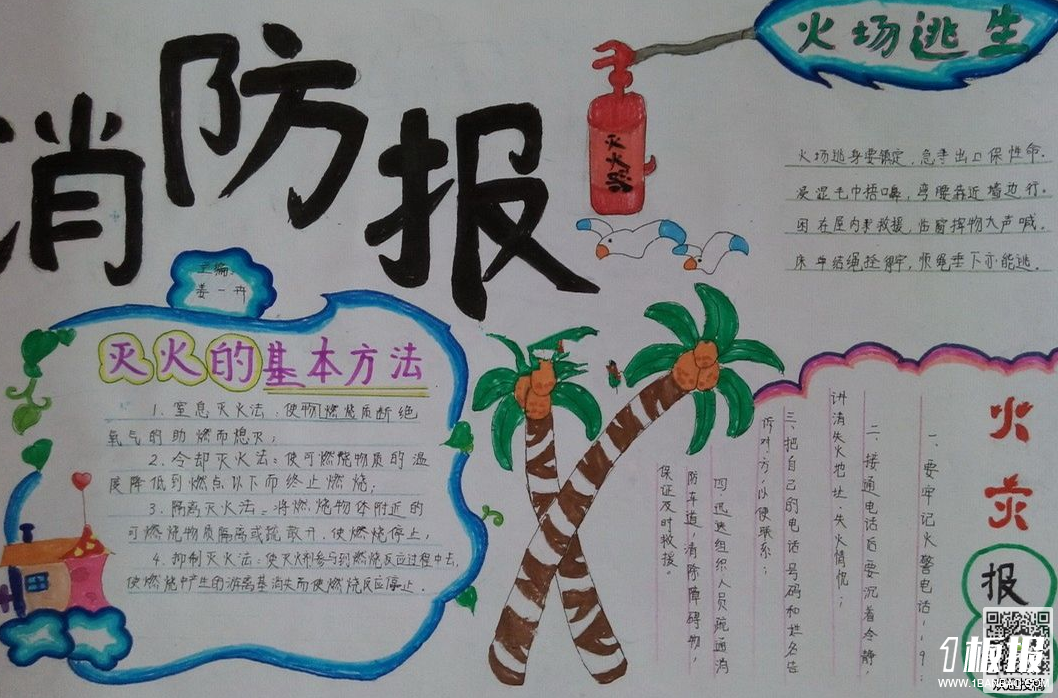 消防报
主编：
姜一卉
灭火器
火场逃生
火场逃身要镇定，急手出卫保性命.
浸湿毛巾捂口鼻，弯腰靠近墙边行.
困在屋内求救援，临窗挥物大声喊.
床单结绳拴得牢，顺绳垂下亦能逃.
灭火的基本方法
1. 窒息灭火法：使物燃烧质断绝
氧气的助燃而熄灭；
2. 令却灭火法：使可燃烧物质的温
度降低到燃点以下而终止燃烧；
3. 隔离灭火法：将燃烧物体附近的
可燃烧物质隔离或疏散开，使燃烧停止，
4. 抑制灭火法：使灭火剂参与到燃烧反应过程中去，
使燃烧中产生的游离基消失而使燃烧反应停止.
火灾
报
一、要牢记火警电话119
二、接通电话后要沉着冷静，
讲清失火地址，失火情况；
三、把自己的电话号码和姓名告
诉对方，以便联系；
四迅速组织人员疏通消
防车道，清除障碍物，
保证及时救援。
1板报
WWW.1BANBAO.COM
欢迎投稿